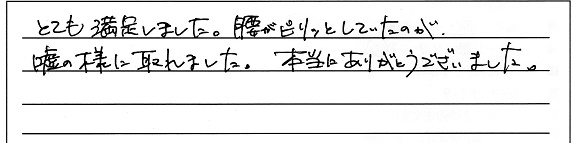 とても満足しました。腰がピリッとしていたのが、
嘘の様に取れました。本当にありがとうございました。